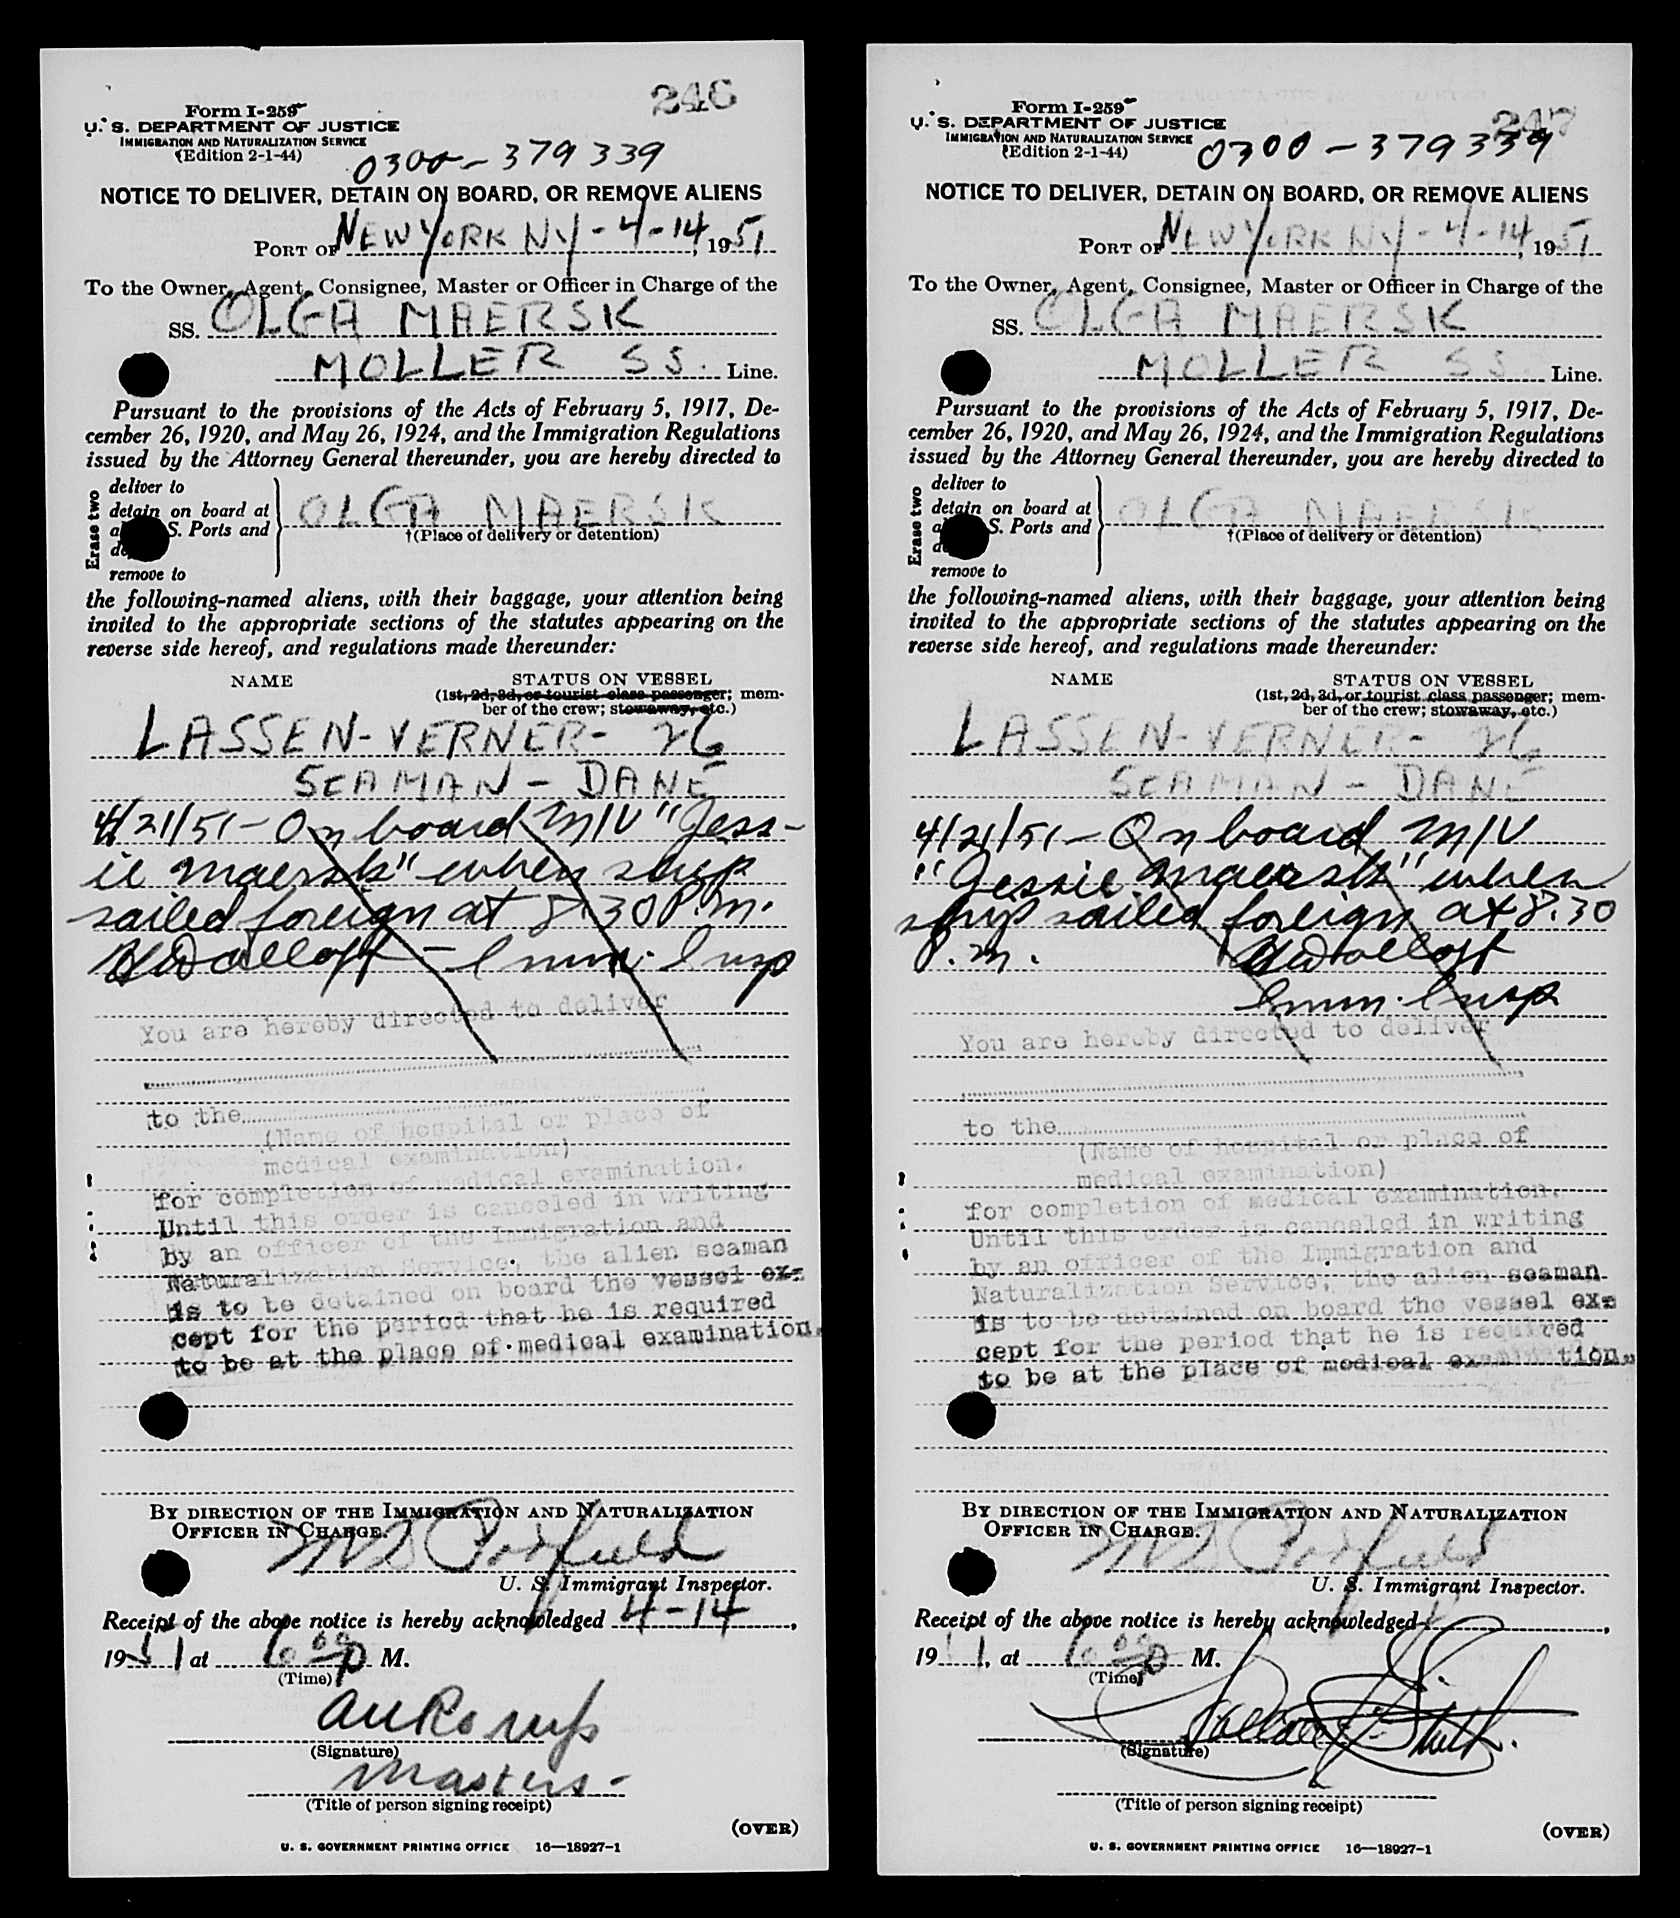 246
Form I-259
U. S. DEPARTMENT OF JUSTICE
IMMIGRATION AND NATURALIZATION SERVICE
(Edition 2-1-44)
0300-379339
NOTICE TO DELIVER, DETAIN ON BOARD, OR REMOVE ALIENS
PORT OF NEW YORK NY - 4-14, 1951
To the Owner, Agent, Consignee, Master or Officer in Charge of the
SS. OLGA MAERSK
MOLLER SS. Line.
Pursuant to the provisions of the Acts of February 5, 1917, De-
cember 26, 1920, and May 26, 1924, and the Immigration Regulations
issued by the Attorney General thereunder, you are hereby directed to
Erase two
deliver to
detain on board at
S. Ports and
remove to
OLGA MAERSK
†(Place of delivery or detention)
the following-named aliens, with their baggage, your attention being
invited to the appropriate sections of the statutes appearing on the
reverse side hereof, and regulations made thereunder:
NAME STATUS ON VESSEL
(1st, 2d, 3d, or tourist class passenger; mem-
ber of the crew; stowaway, etc.)
LASSEN-VERNER- 26
SEAMAN - DANE
4/21/51 - On board M/V "Jess-
ie Maersk" when ship
sailed foreign at 8.30 P.M.
- Imm. Insp
You are hereby directed to deliver
to the
(Name of hospital or place of
medical examination)
for completion of medical examination.
Until this order is canceled in writing
by an officer of the Immigration and
Naturalization Service, the alien seaman
is to be detained on board the vessel ex-
cept for the period that he is required
to be at the place of medical examination.
BY DIRECTION OF THE IMMIGRATION AND NATURALIZATION
OFFICER IN CHARGE.
U. S. Immigrant Inspector.
Receipt of the above notice is hereby acknowledged 4-14,
1951 at 6 00 P M.
(Time)
(Signature)
Masters-
(Title of person signing receipt)
(OVER)
U. S. GOVERNMENT PRINTING OFFICE 16—18927-1
247
Form I-259
U. S. DEPARTMENT OF JUSTICE
IMMIGRATION AND NATURALIZATION SERVICE
(Edition 2-1-44)
0300-379339
NOTICE TO DELIVER, DETAIN ON BOARD, OR REMOVE ALIENS
PORT OF NEW YORK NY - 4-14, 1951
To the Owner, Agent, Consignee, Master or Officer in Charge of the
SS. OLGA MAERSK
MOLLER SS Line.
Pursuant to the provisions of the Acts of February 5, 1917, De-
cember 26, 1920, and May 26, 1924, and the Immigration Regulations
issued by the Attorney General thereunder, you are hereby directed to
Erase two
deliver to
detain on board at
S. Ports and
remove to
OLGA MAERSK
†(Place of delivery or detention)
the following-named aliens, with their baggage, your attention being
invited to the appropriate sections of the statutes appearing on the
reverse side hereof, and regulations made thereunder:
NAME STATUS ON VESSEL
(1st, 2d, 3d, or tourist class passenger; mem-
ber of the crew; stowaway, etc.)
LASSEN-VERNER- 26
SEAMAN - DANE
4/21/51 - On board M/V
"Jessie Maersk" when
ship sailed foreign at 8.30
P.M.
Imm. Insp
You are hereby directed to deliver
to the
(Name of hospital or place of
medical examination)
for completion of medical examination.
Until this order is canceled in writing
by an officer of the Immigration and
Naturalization Service, the alien seaman
is to be detained on board the vessel ex-
cept for the period that he is required
to be at the place of medical examination.
BY DIRECTION OF THE IMMIGRATION AND NATURALIZATION
OFFICER IN CHARGE.
U. S. Immigrant Inspector.
Receipt of the above notice is hereby acknowledged
19 1, at 6 00 P M.
(Time)
(Signature)
(Title of person signing receipt)
(OVER)
U. S. GOVERNMENT PRINTING OFFICE 16—18927-1